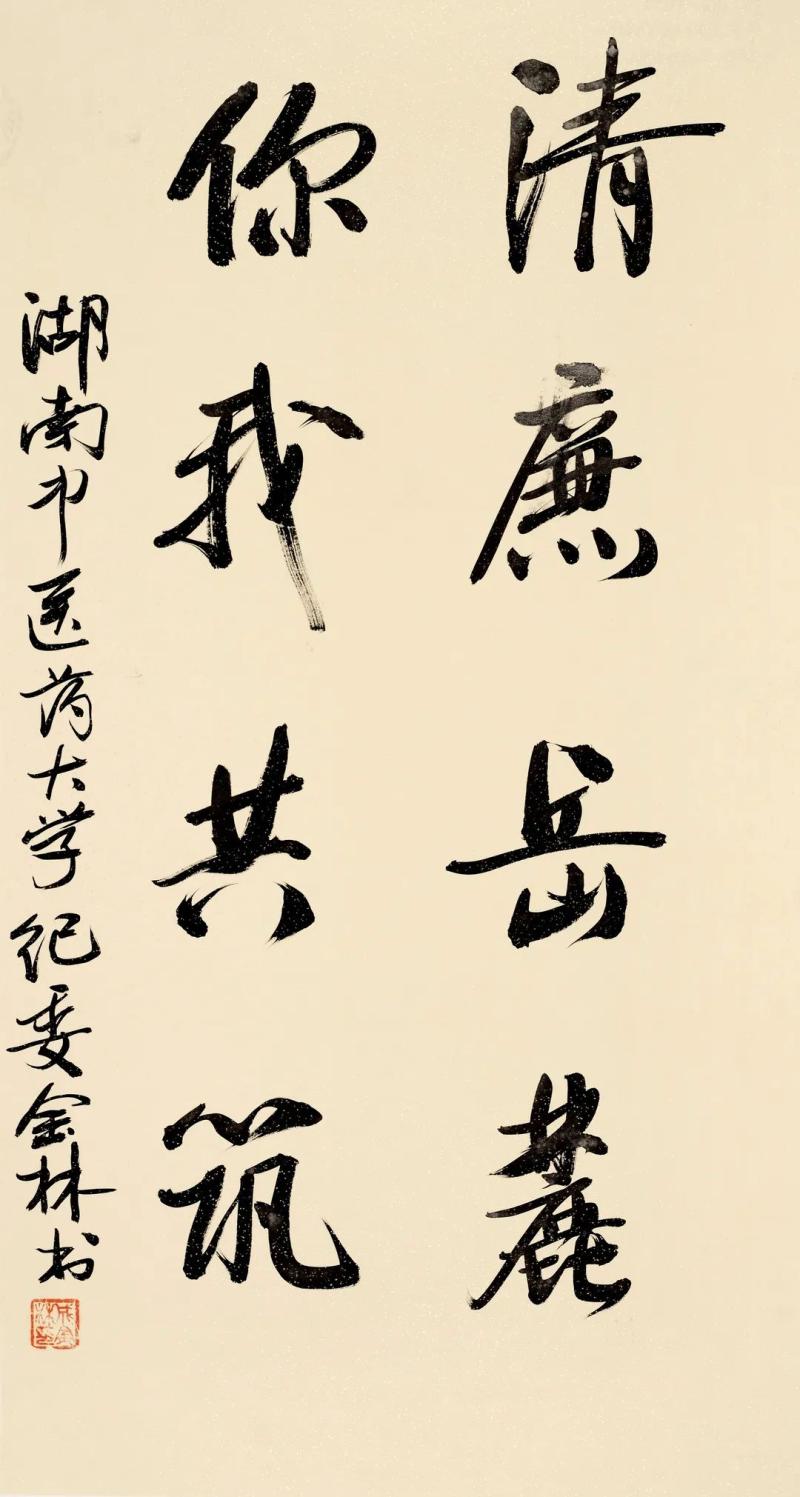 清廉岳麓
你我共筑
湖南中医药大学纪委金林书